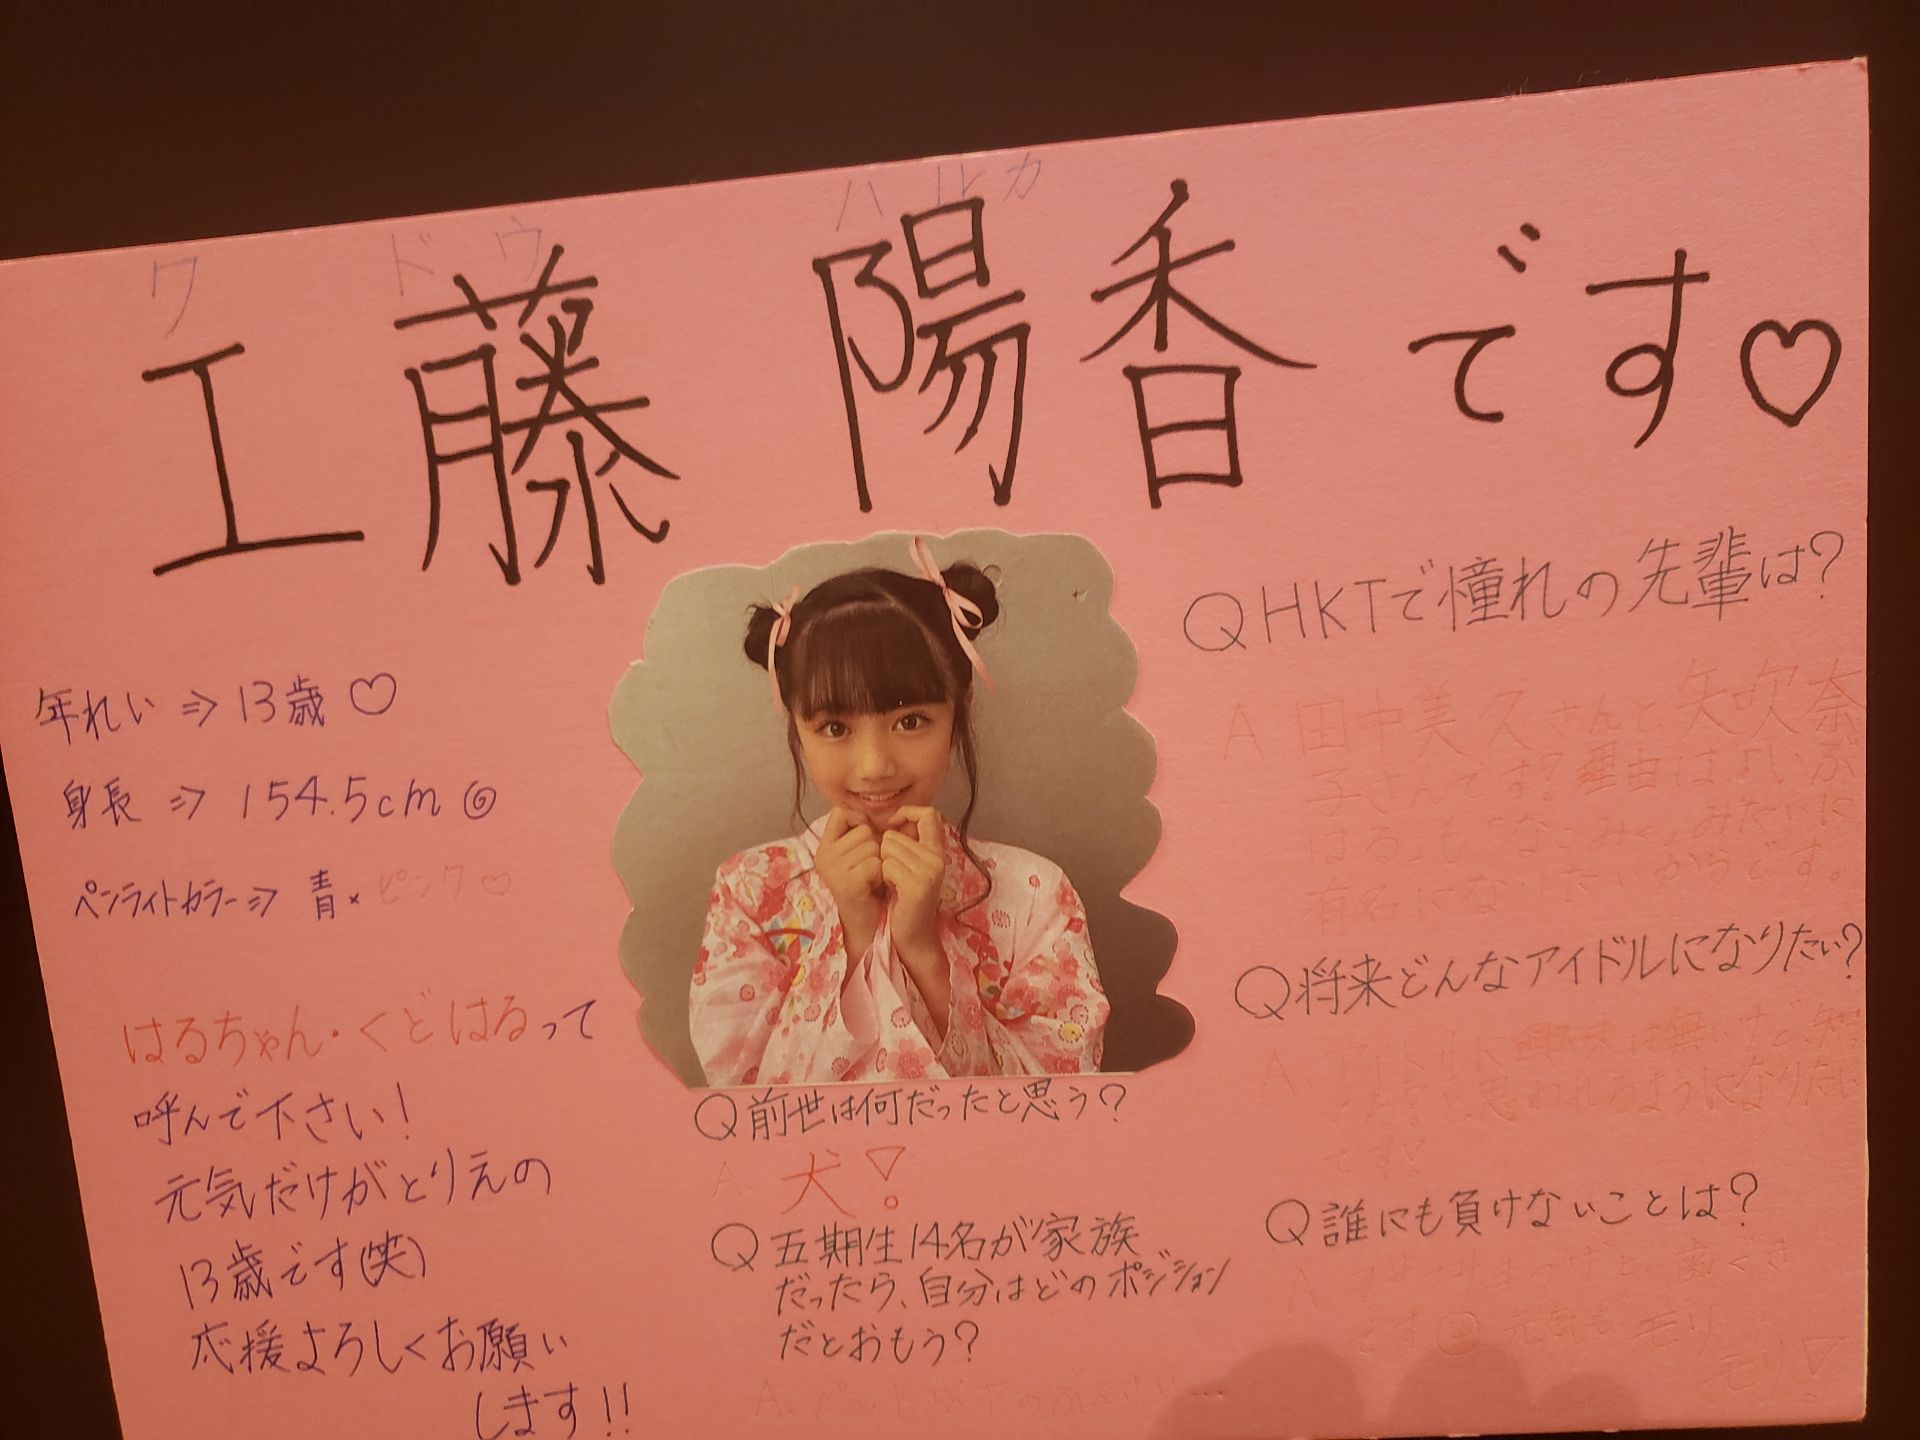 ク ドウ ハルカ
工藤 陽香 です♡
年れい ⇒ 13歳♡
身長 ⇒ 154.5cm
ペンライトカラー⇒ 青×ピンク♡
はるちゃん・くどはるって
呼んで下さい!
元気だけがとりえの
13歳です(笑)
応援よろしくお願い
します!!
Q前世は何だったと思う?
A. 犬!
Q五期生14名が家族
だったら、自分はどのポジション
だとおもう?
A. ペット以下のぶんさい…
QHKTで憧れの先輩は?
A 田中美久さんと矢吹奈
子さんです!理由は、「いぶ
はる」も「なこみく」みたいに
有名になりたいからです。
Q将来どんなアイドルになりたい?
A アイドルに興味は無いけど、知
てる!と思われるようになりたい
です!
Q誰にも負けないことは?
A まつげと、歯ぐき
です 元気も モリ
モリ!